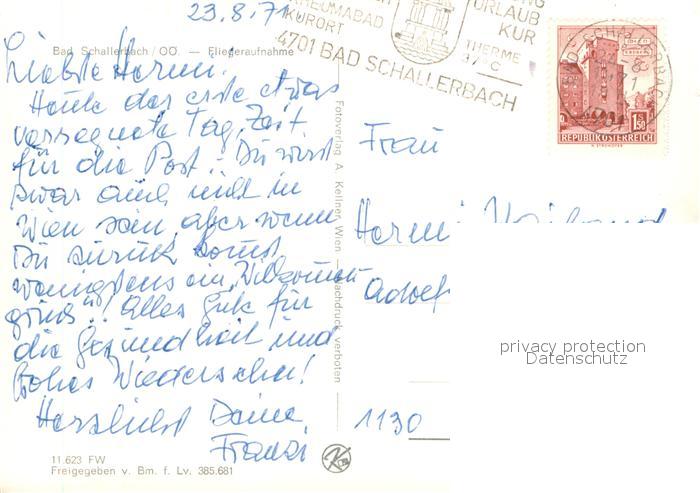 23.8.71
RHEUMABAD
KURORT
4701 BAD SCHALLERBACH
URLAUB
KUR
THERME
37°C
REPUBLIK ÖSTERREICH
Bad Schallerbach/OÖ. – Fliegeraufnahme
Liebste Hermi!
Heute der erste etwas
verregnete Tag, Zeit
für die Post! Du wirst
zwar auch nicht in
Wien sein, aber wenn
Du zurück kommst
wenigstens ein "Willkommen-
gruß"! Alles Gute für
die Gesundheit und
frohes Wiedersehen!
Herzlichst Deine
Fotoverlag A. Kellner, Wien – Nachdruck verboten
Frau
Hermi
1130
privacy protection
Datenschutz
11.623 FW
Freigegeben v. Bm. f. Lv. 385.681